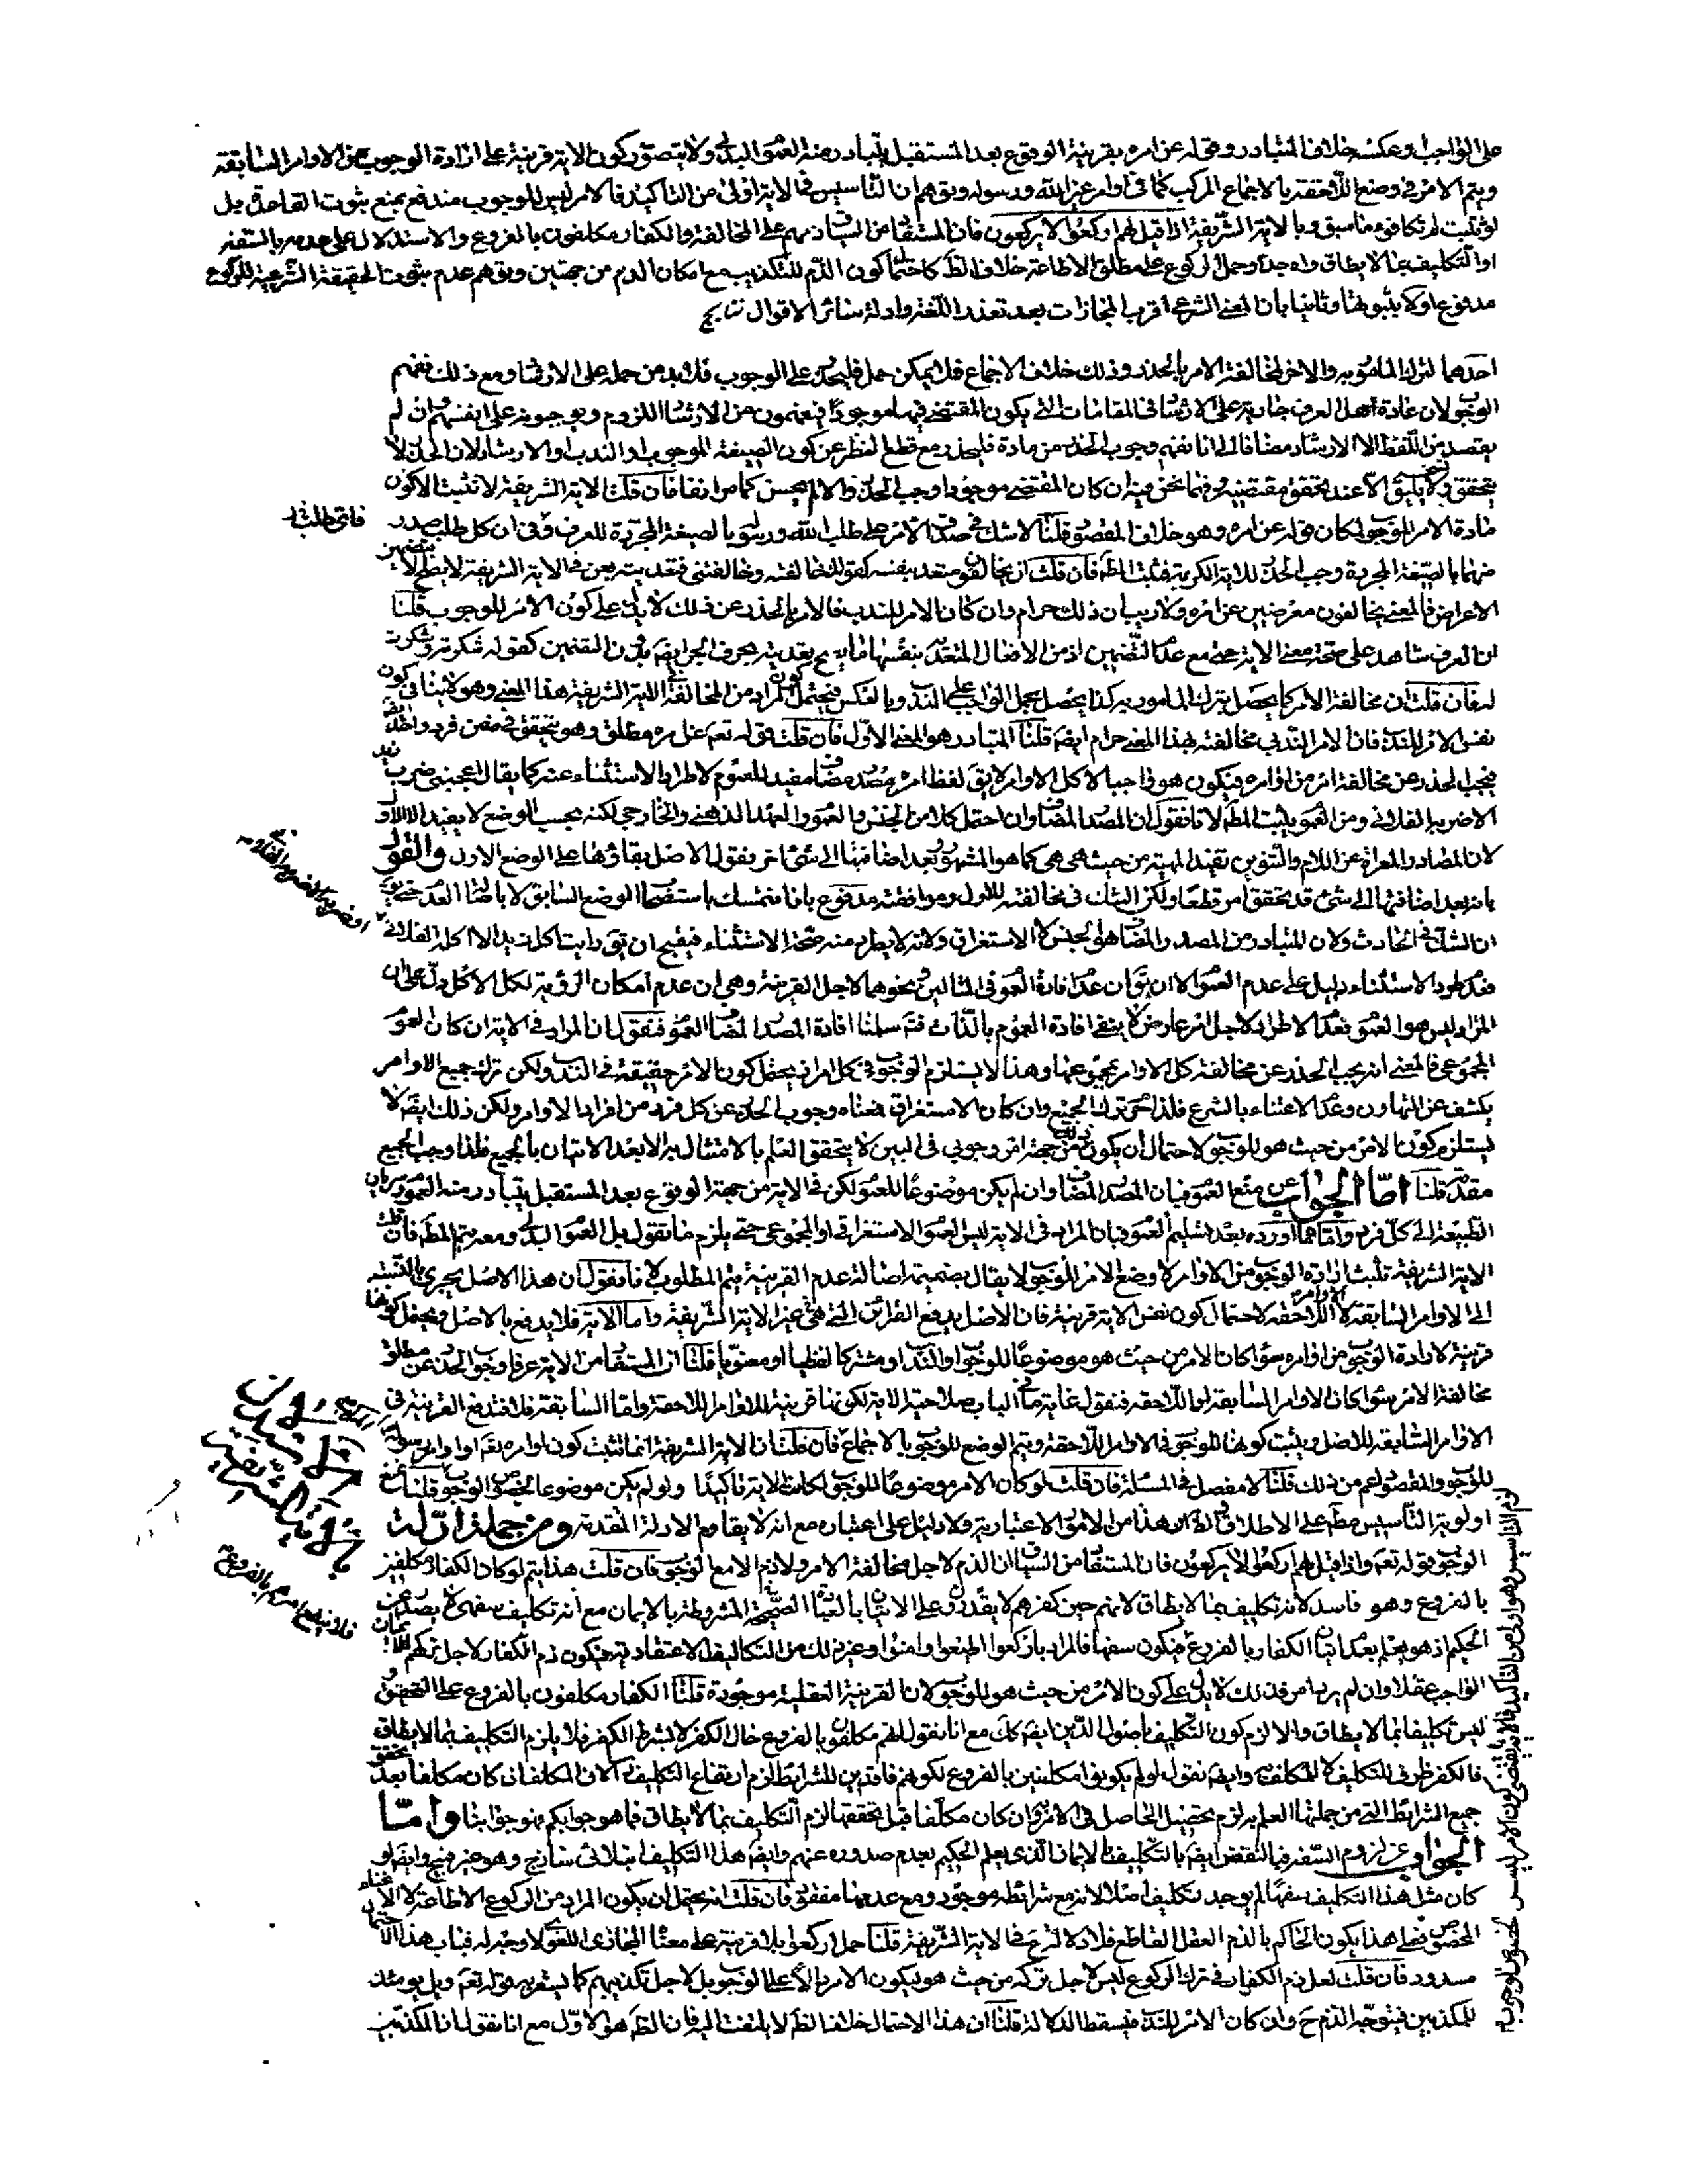 على الواجب وعكسه خلاف المتبادر وقوله عن امره بقرينة الوقوع بعد المستقبل يتبادر منه العموم البدلى ولا يتصور كون الاية قرينة على ارادة الوجوب من الاوامر السابقة
ويتم الامر فى وضع اللاحقة بالاجماع المركب كما فى اوامر غير الله ورسوله وتوهم ان التأسيس فى الاية اولى من التاكيد فالامر ليس للوجوب مندفع بمنع ثبوت القاعدة بل
لو ثبت لم تكافؤ ما سبق وبالاية الشريفة اذا قيل لهم اركعوا لا يركعون فان المستفاد من السياق ذمهم على المخالفة والكفار مكلفون بالفروع والاستدلال على عدمه بالسفه
او التكليف بما لا يطاق واه جدا وحمل الركوع على مطلق الاطاعة خلاف الظ كاحتمال كون الذم للتكذيب مع امكان الذم من جهتين وتوهم عدم ثبوت الحقيقة الشرعية للركوع
مدفوع اولا بثبوتها وثانيا بان المعنى الشرعى اقرب المجازات بعد تعذر اللغة وادلة سائر الاقوال
احدهما لترك المامور به والاخر لمخالفة الامر بالحذر وذلك خلاف الاجماع فلا يمكن حمل فليحذر على الوجوب فلابد من حمله على الارشاد ومع ذلك نفهم
الوجوب لان عادة اهل العرف جارية على الارشاد فى المقامات التى يكون المقتضى فيها موجودا فيفهمون من الارشاد اللزوم ويوجبونه على انفسهم وان لم
يقصد من اللفظ الا الارشاد مضافا الى انا نفهم وجوب الحذر من مادة فليحذر مع قطع النظر عن كون الصيغة للوجوب او الندب او الارشاد لان الحذر لا
يتحقق ولا يليق الا عند تحقق مقتضيه وفيما نحن فيه ان كان المقتضى موجودا وجب الحذر والا لم يحسن كما مر انفا فان قلت الاية الشريفة لا تثبت الا كون
مادة الامر للوجوب لمكان قوله عن امره وهو خلاف المقصود قلنا لا شك فى صدق الامر على طلب الله ورسوله بالصيغة المجردة للعرف وفى ان كل طلب صدر
منهما بالصيغة المجردة وجب الحذر للاية الكريمة فثبت المط فان قلت ان يخالفون متعد بنفسه كقولك خالفته وخالفتنى فتعديته بعن فى الاية الشريفة لا يصح الا بتضمين
الاعراض فالمعنى يخالفون معرضين عن امره ولا ريب ان ذلك حرام وان كان الامر للندب فالامر بالحذر عن ذلك لا يدل على كون الامر للوجوب قلنا
ان العرف شاهد على صحة معنى الاية حتى مع عدم التضمين اذ من الافعال المتعدية بنفسها ما يصح تعديته بحرف الجر ايضا بدون التضمين كقوله شكرته وشكرت
له فان قلت ان مخالفة الامر كما يحصل بترك المامور به كذا يحصل بحمل الواجب على الندب وبالعكس فيحتمل كون المراد من المخالفة فى الاية الشريفة هذا المعنى وهو لا ينافى كون
نفس الامر للندب فان الامر الندبى مخالفته بهذا المعنى حرام ايضا قلنا المتبادر هو المعنى الاول فان قلت قوله تعم عن امره مطلق وهو يتحقق فى ضمن فرد واحد
فيجب الحذر عن مخالفة امر من اوامره فيكون هو واجبا لا كل الاوامر لا يق لفظ امره مصدر مضاف مفيد للعموم لاطراد الاستثناء عنه كما يقال اعجبنى ضرب زيد
الا ضربه الفلانى ومن العموم يثبت المط لانا نقول ان المصدر المضاف وان احتمل كلا من الجنس والعموم والعهد الذهنى والخارجى لكنه بحسب الوضع لا يفيد الا الاول
لان المصادر المعراة عن اللام والتنوين تفيد المهية من حيث هى هى كما هو المشهور وبعد اضافتها الى شئ اخر نقول الاصل بقاؤها على الوضع الاول والقول
بانه بعد اضافتها الى شئ قد تحقق امر قطعا ولكن الشك فى مخالفته للاول وموافقته مدفوع بانا نتمسك باستصحاب الوضع السابق لا باصالة العدم حتى يق
ان الشك فى الحادث ولان المتبادر من المصدر المضاف هو الجنس لا الاستغراق ولانه لا يطرد منه صحة الاستثناء فيقبح ان تق رايت اكل زيد الا اكله الفلانى
فعدم اطراد الاستثناء دليل على عدم العموم الا ان يق ان عدم افادة العموم فى المثالين ونحوهما لاجل القرينة وهى ان عدم امكان الرؤية لكل الاكل دل على ان
المراد ليس هو العموم فعدم الاطراد لاجل امر عارض لا ينفى افادة العموم بالذات ثم سلمنا افادة المصدر المضاف العموم فنقول ان المراد فى الاية ان كان العموم
المجموعى فالمعنى انه يجب الحذر عن مخالفة كل الاوامر بمجموعها وهذا لا يستلزم الوجوب فى كل امر اذ يحتمل كون الامر حقيقة فى الندب ولكن ترك جميع الاوامر
يكشف عن التهاون وعدم الاعتناء بالشرع فلذا حرم ترك الجميع وان كان الاستغراق فمعناه وجوب الحذر عن كل فرد من افراد الاوامر ولكن ذلك ايضا لا
يستلزم كون الامر من حيث هو للوجوب لاحتمال ان يكون ذلك من جهة امر وجوبى فى البين لا يتحقق العلم بالامتثال به الا بعد الاتيان بالجميع فلذا وجب الجميع
مقدمة قلنا اما الجواب عن منع العموم فبان المصدر المضاف وان لم يكن موضوعا للعموم لكن فى الاية من جهة الوقوع بعد المستقبل يتبادر منه العموم وسريان
الطبيعة الى كل فرد واما عما اورده بعد تسليم العموم فبان المراد فى الاية ليس العموم الاستغراقى او المجموعى حتى يلزم ما تقول بل العموم البدلى ومعه يتم المط فان قلت
الاية الشريفة تثبت ارادة الوجوب من الاوامر لا وضع الامر للوجوب لا يقال بضميمة اصالة عدم القرينة يتم المطلوب لانا نقول ان هذا الاصل يجرى بالنسبة
الى الاوامر السابقة لا الاوامر اللاحقة لاحتمال كون نفس الاية قرينة فان الاصل يدفع القرائن التى هى غير الاية الشريفة واما الاية فلا يدفع بالاصل فيحتمل كونها
قرينة لارادة الوجوب من اوامره سواء كان الامر من حيث هو موضوعا للوجوب او الندب او مشتركا لفظيا او معنويا قلنا ان المستفاد من الاية عرفا وجوب الحذر عن مطلق
مخالفة الامر سواء كان الاوامر السابقة او اللاحقة فنقول غاية ما فى الباب صلاحية الاية لكونها قرينة للاوامر اللاحقة واما السابقة فلا فتدفع القرينة فى
الاوامر السابقة للاصل ويثبت كونها للوجوب فى الاوامر اللاحقة ويتم الوضع للوجوب بالاجماع فان قلت ان الاية الشريفة انما تثبت كون اوامره تعم واوامر رسوله
للوجوب والمقصود اعم من ذلك قلنا لا مفصل فى المسئلة فان قلت لو كان الامر موضوعا للوجوب لكانت الاية تاكيدا ولو لم يكن موضوعا لخصوص الوجوب قلنا نمنع
اولوية التاسيس مط على الاطلاق اذ هذا من الامور الاعتبارية ولا دليل على اعتباره مع انه لا يقاوم الادلة المتقدمة ومن جملة ادلة
الوجوب قوله تعم واذا قيل لهم اركعوا لا يركعون فان المستفاد من السياق ان الذم لاجل مخالفة الامر ولا ذم الا مع الوجوب فان قلت هذا يتم لو كان الكفار مكلفين
بالفروع وهو فاسد لانه تكليف بما لا يطاق لانهم حين كفرهم لا يقدرون على الاتيان بالعبادات الصحيحة المشروطة بالايمان مع انه تكليف سفهى لا يصدر عن
الحكيم اذ هو يعلم بعدم اتيان الكفار بالفروع فيكون سفها فالمراد باركعوا اطيعوا وامنوا وغير ذلك من التكاليف الاعتقادية فيكون ذم الكفار لاجل تركهم الايمان
الواجب عقلا وان لم يرد امر فذلك لا يدل على كون الامر من حيث هو للوجوب لان القرينة العقلية موجودة قلنا الكفار مكلفون بالفروع على التحقيق
ليس تكليفا بما لا يطاق والا لزم كون التكليف باصول الدين ايضا كك مع انا نقول انهم مكلفون بالفروع حال الكفر لا بشرط الكفر فلا يلزم التكليف بما لا يطاق
فالكفر ظرف للتكليف لا للمكلف به وايضا نقول لو لم يكونوا مكلفين بالفروع لكونهم فاقدين للشرايط لزم ارتفاع التكليف لان المكلف ان كان مكلفا بعد تحقق
جميع الشرائط التى من جملتها العلم يلزم تحصيل الحاصل فى الامر وان كان مكلفا قبل تحققها لزم التكليف بما لا يطاق فما هو جوابكم فهو جوابنا واما
الجواب عن لزوم السفه فبالنقض ايضا بالتكليف بالايمان الذى يعلم الحكيم بعدم صدوره عنهم وايضا هذا التكليف ابتلائى ساذج وهو غير قبيح وايضا لو
كان مثل هذا التكليف سفها لم يوجد تكليف اصلا لانه مع شرائطه موجود ومع عدمها مفقود فان قلت انه يحتمل ان يكون المراد من الركوع الاطاعة لا الانحناء
المخصوص فعلى هذا يكون الحاكم بالذم العقل القاطع فلا دلالة فى الاية الشريفة قلنا حمل اركعوا بلا قرينة على معناه المجازى اللغوى لا وجه له فباب هذا الاحتمال
مسدود فان قلت لعل ذم الكفار فى ترك الركوع ليس لاجل تركه من حيث هو ليكون الامر دالا على الوجوب بل لاجل تكذيبهم كما يشعر به قوله تعم ويل يومئذ
للمكذبين فيتوجه الذم ح وان كان الامر للندب فيسقط الدلالة قلنا ان هذا الاحتمال خلاف الظ لا يلتفت اليه فان الظ هو الاول مع انا نقول ان المكذبين